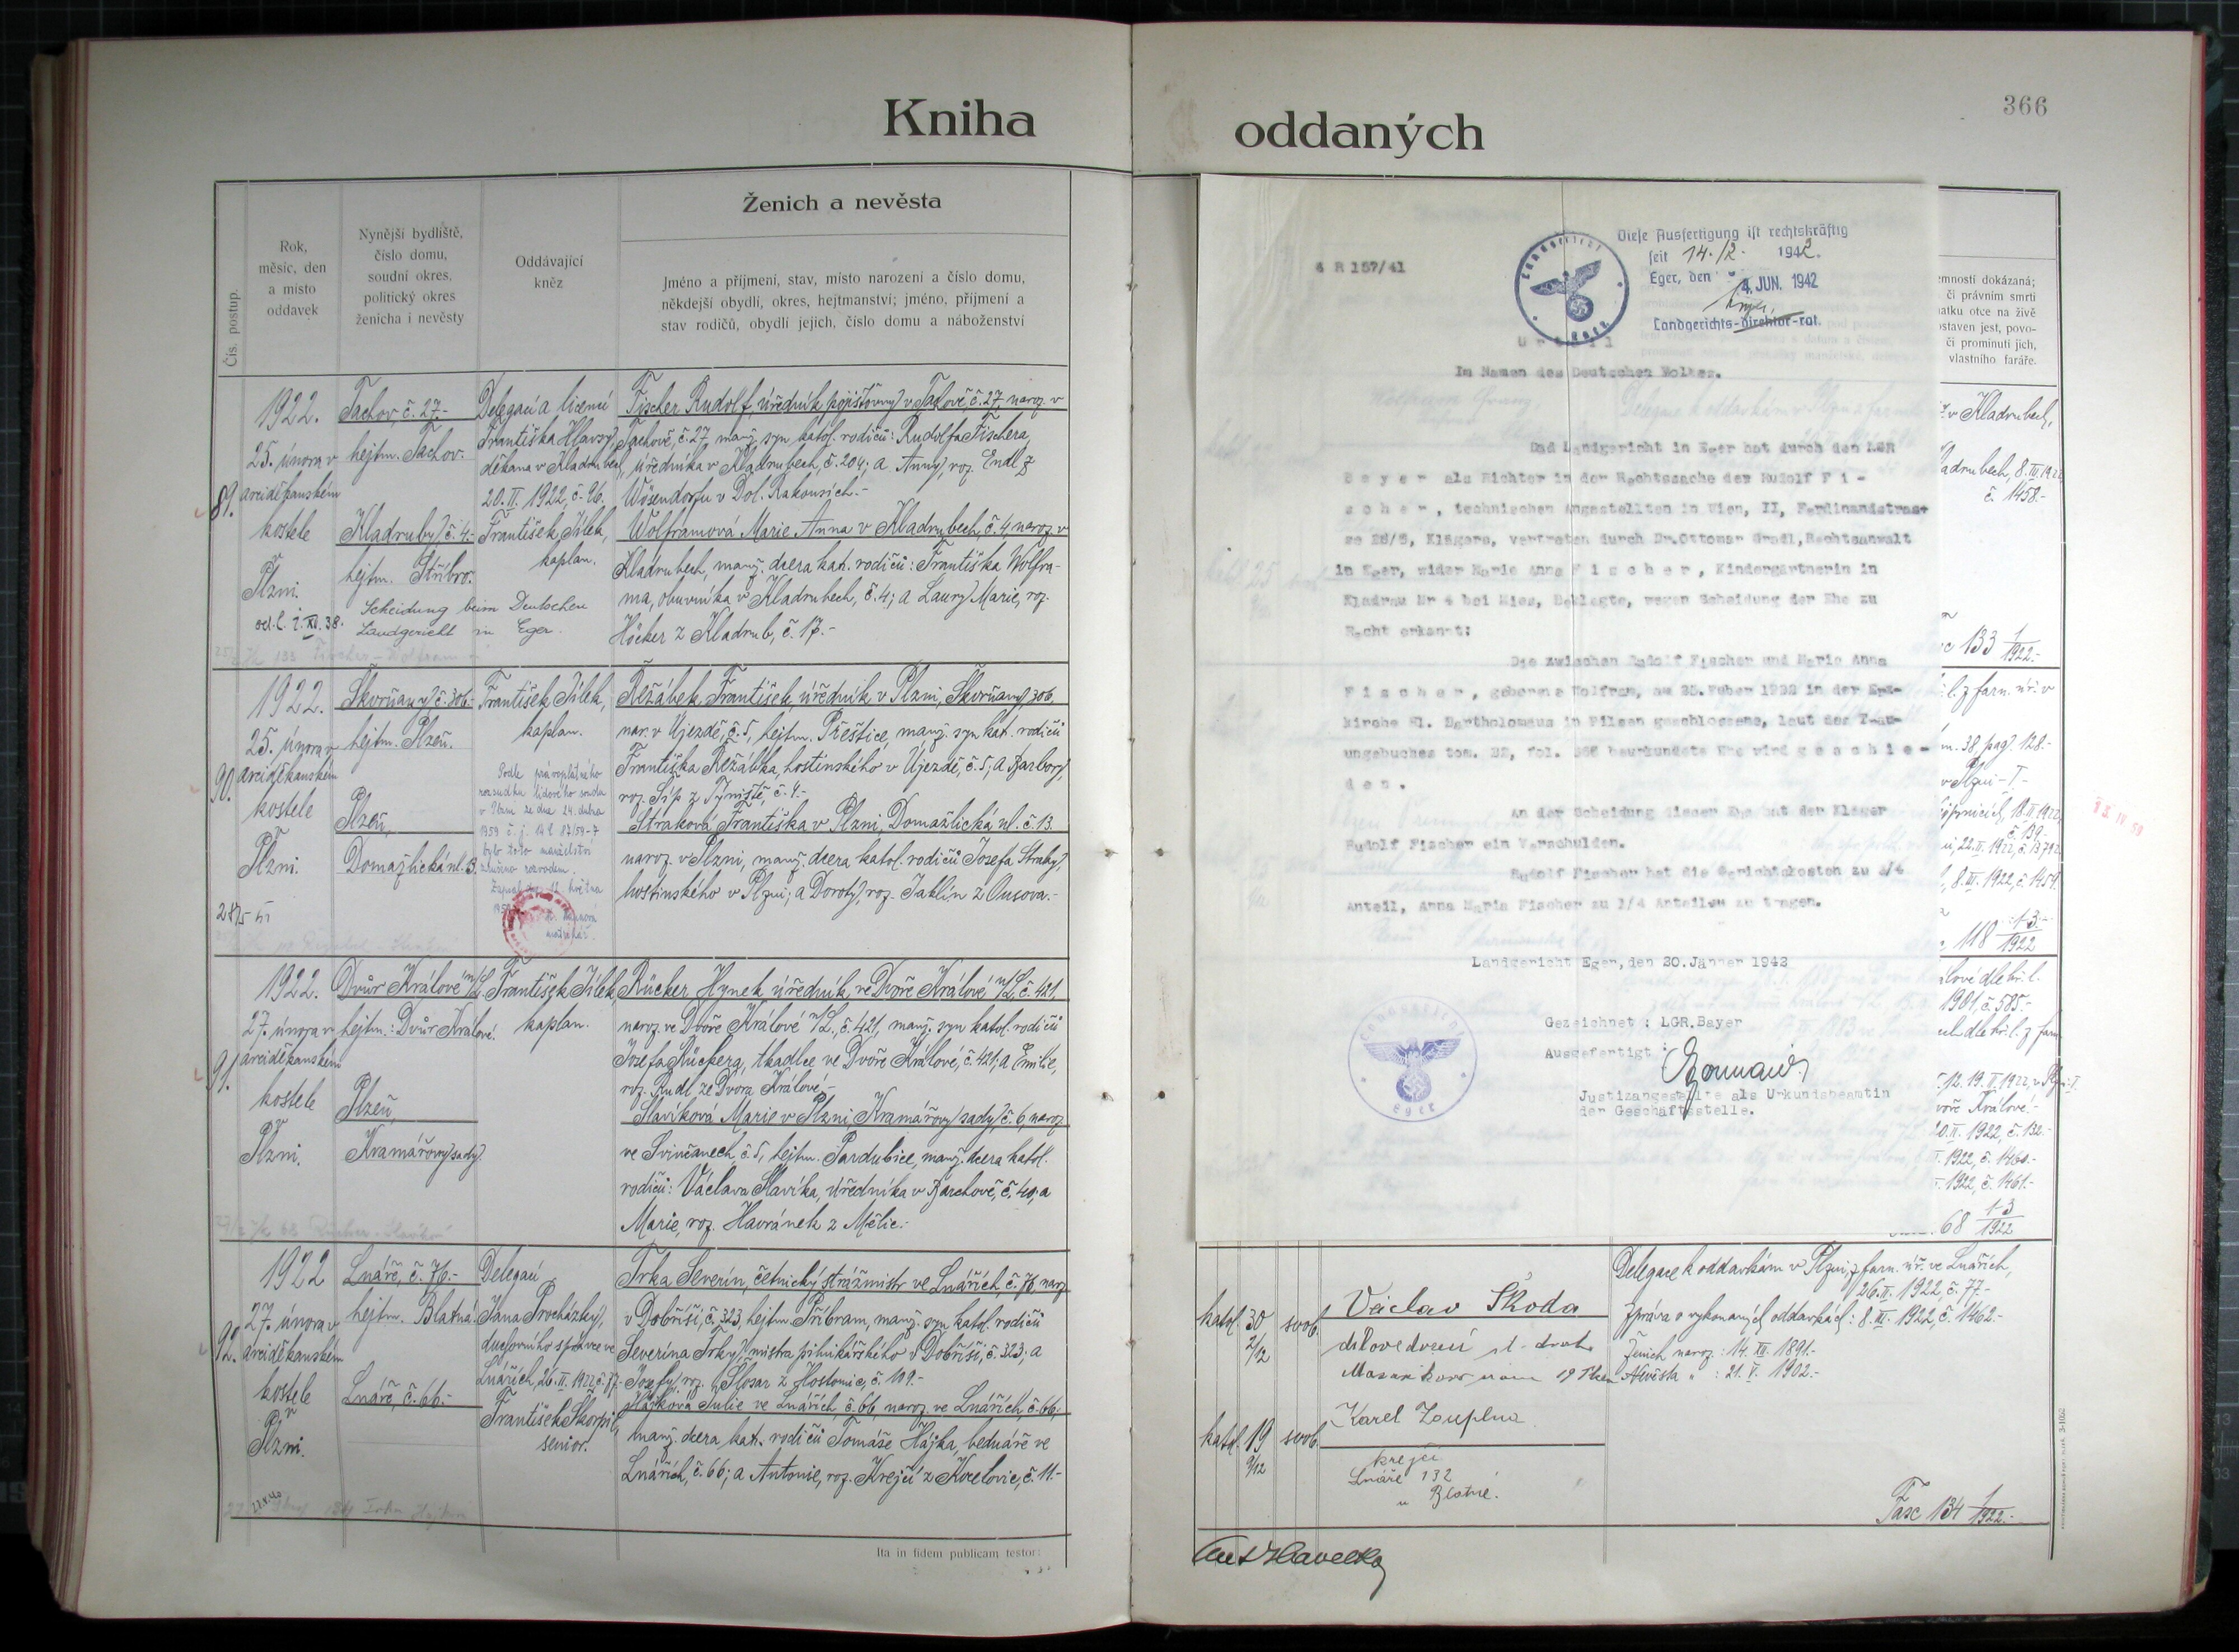 Kniha
Ženich a nevěsta
Čís. postup.
Rok,
měsíc, den
a místo
oddavek
Nynější bydliště,
číslo domu,
soudní okres,
politický okres
ženicha i nevěsty
Oddávající
kněz
Jméno a příjmení, stav, místo narození a číslo domu,
někdejší obydlí, okres, hejtmanství; jméno, příjmení a
stav rodičů, obydlí jejich, číslo domu a náboženství
89.
1922.
25. února v
arciděkanském
kostele
Plzni.
Tachov, č. 27.-
hejtm. Tachov.
Kladruby, č. 4.-
hejtm. Stříbro.
Scheidung beim Deutschen
Landgericht in Eger.
Delegací a licencí
Františka Hlavsy,
děkana v Kladrubech,
20. II. 1922, č. 96.
František Jílek,
kaplan.
Fischer Rudolf, úředník pojišťovny v Tachově, č. 27, naroz. v
Tachově, č. 27, manž. syn katol. rodičů: Rudolfa Fischera,
úředníka v Kladrubech, č. 204; a Anny, roz. Endl z
Wösendorfu v Dol. Rakousích.-
Wolframová Marie Anna v Kladrubech, č. 4, naroz. v
Kladrubech, manž. dcera kat. rodičů: Františka Wolfra-
ma, obuvníka v Kladrubech, č. 4; a Laury Marie, roz.
Höcker z Kladrub, č. 17.-
90.
1922.
25. února v
arciděkanském
kostele
Plzni.
Skvrňany, č. 306.-
hejtm. Plzeň.
Plzeň,
Domažlická ul. 13.
František Jílek,
kaplan.
Podle právoplatného
rozsudku lidového soudu
v Plzni ze dne 24. dubna
1959 č. j. 14 C 87/59-7
bylo toto manželství
zrušeno rozvodem.
Řežábek František, úředník v Plzni, Skvrňany, 306,
nar. v Újezdě, č. 5, hejtm. Přeštice, manž. syn kat. rodičů
Františka Řežábka, hostinského v Újezdě, č. 5; a Barbory,
roz. Šíp z Týniště, č. 4.-
Straková Františka v Plzni, Domažlická ul. č. 13.
naroz. v Plzni, manž. dcera katol. rodičů Josefa Straky,
hostinského v Plzni; a Doroty, roz. Jaklín z Ousova.-
91.
1922.
27. února v
arciděkanském
kostele
Plzni.
Dvůr Králové n/L.
hejtm.: Dvůr Králové.
Plzeň,
Kramářovy sady.
František Jílek,
kaplan.
Rücker Hynek, úředník, ve Dvoře Králové n/L, č. 421,
naroz. ve Dvoře Králové n/L., č. 421, manž. syn katol. rodičů
Josefa Rückera, tkadlce ve Dvoře Králové, č. 421; a Emilie,
roz. Rudl ze Dvora Králové.-
Slavíková Marie v Plzni, Kramářovy sady, č. 6, naroz.
ve Svinčanech, č. 5, hejtm. Pardubice, manž. dcera katol.
rodičů: Václava Slavíka, úředníka v Barchově, č. 40; a
Marie, roz. Havránek z Mělic.-
92.
1922
27. února v
arciděkanském
kostele
v
Plzni.
Lnáře, č. 76.-
hejtm. Blatná
Lnáře, č. 66.-
Delegací
Jana Procházky,
duchovního správce ve
Lnářích, 26. II. 1922 č. 77.-
František Škorpil,
senior.
Trka Severín, četnický strážmistr ve Lnářích, č. 76, naroz.
v Dobříši, č. 323, hejtm. Příbram, manž. syn katol. rodičů
Severína Trky, mistra pilnikářského v Dobříši, č. 323; a
Josefy, roz. Šlosar z Hostomic, č. 109.-
Hájková Julie ve Lnářích, č. 66, naroz. ve Lnářích, č. 66,
manž. dcera kat. rodičů Tomáše Hájka, bednáře ve
Lnářích, č. 66; a Antonie, roz. Krejčí z Kocelovic, č. 11.-
Ita in fidem publicam testor:
oddaných
366
4 R 157/41
Diese Ausfertigung ist rechtskräftig
seit 14./2. 1942.
Eger, den 4. JUN. 1942
Landgerichts-direktor-rat.
Landgericht
Eger
Urteil
Im Namen des Deutschen Volkes.
Das Landgericht in Eger hat durch den LGR
Bayer als Richter in der Rechtssache des Rudolf Fi-
scher, technischen Angestellten in Wien, II, Ferdinandstras-
se 28/5, Klägers, vertreten durch Dr.Ottomar Gradl,Rechtsanwalt
in Eger, wider Marie Anna Fischer, Kindergärtnerin in
Kladrau Nr 4 bei Mies, Beklagte, wegen Scheidung der Ehe zu
Recht erkannt:
Die zwischen Rudolf Fischer und Marie Anna
Fischer, geborene Wolfram, am 25.Feber 1922 in der Erz-
kirche Hl. Bartholomäus in Pilsen geschlossene, laut des Trau-
ungsbuches tom. 32, fol. 366 beurkundete Ehe wird geschie-
den.
An der Scheidung dieser Ehe hat der Kläger
Rudolf Fischer ein Verschulden.
Rudolf Fischer hat die Gerichtskosten zu 3/4
Anteil, Anna Maria Fischer zu 1/4 Anteilen zu tragen.
Landgericht Eger,den 20.Jänner 1942
Gezeichnet : LGR.Bayer
Ausgefertigt :
Justizangestellte als Urkundsbeamtin
der Geschäftsstelle.
Landgericht
Eger
emnosti dokázaná;
či právním smrti
matku otce na živě
ostaven jest, povo-
či prominutí jich,
vlastního faráře.
v Kladrubech,
adrubech, 8. III. 1922
č. 1458.-
133 1/1922.-
l. z farn. úř. v
m. 38, pag. 128.-
v Plzni-I-
18. II. 1922,
č. 139.-
22. II. 1922, č. 1379 2.
8. III. 1922, č. 1459.
118 1-3.-/1922
lové dle kř. l.
1901, č. 585.-
dle kř. l. z farn.
voře Králové.-
20. II. 1922, č. 132.-
1922, č. 1460.-
1922, č. 1461.-
68 1-3/1922
katol. 30 2/12 svob.
Václav Škoda
Karel Zouplna
krejčí
Lnáře 132
u Blatné.
katol. 19 9/12 svob.
Delegace k oddavkám v Plzni, z farn. úř. ve Lnářích,
26. II. 1922, č. 77.-
Zpráva o vykonaných oddavkách: 8. III. 1922, č. 1462.-
Ženich naroz.: 14. XII. 1891.-
Nevěsta " : 21. V. 1902.-
Fasc 134 1/1922.-